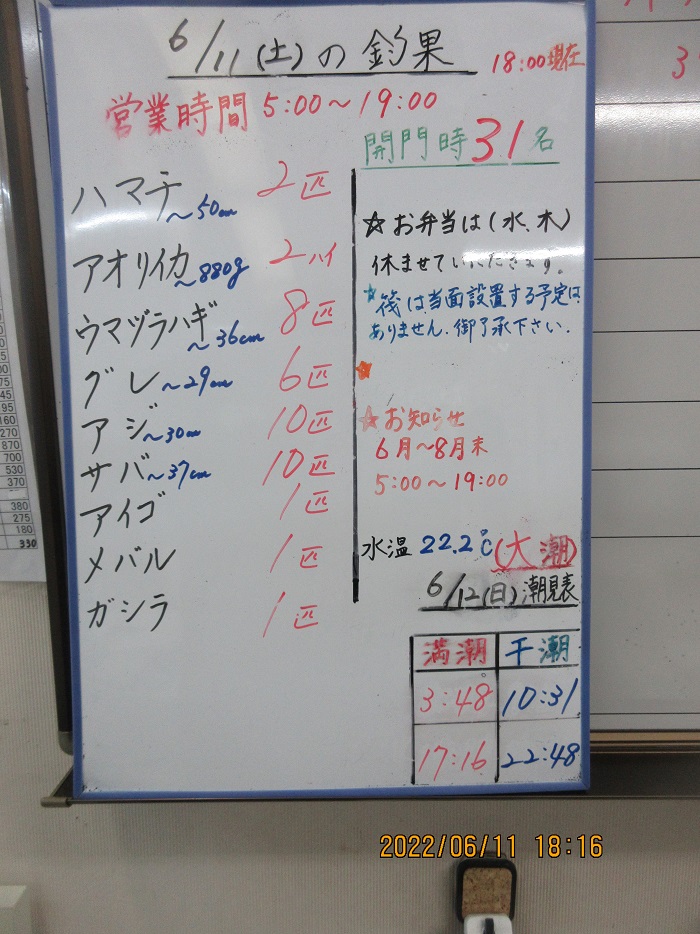 6/11(土)の釣果
18:00現在
営業時間 5:00～19:00
開門時31名
ハマチ ～50cm 2匹
アオリイカ ～880g 2ハイ
ウマヅラハギ ～36cm 8匹
グレ ～29cm 6匹
アジ ～30cm 10匹
サバ ～37cm 10匹
アイゴ 1匹
メバル 1匹
ガシラ 1匹
☆お弁当は(水、木)
休ませていただきます。
☆筏は当面設置する予定は
ありません。御了承下さい.
☆お知らせ
6月～8月末
5:00～19:00
水温 22.2℃(大潮)
6/12(日)潮見表
満潮 干潮
3:48 10:31
17:16 22:48
380
275
180
330
2022/06/11 18:16